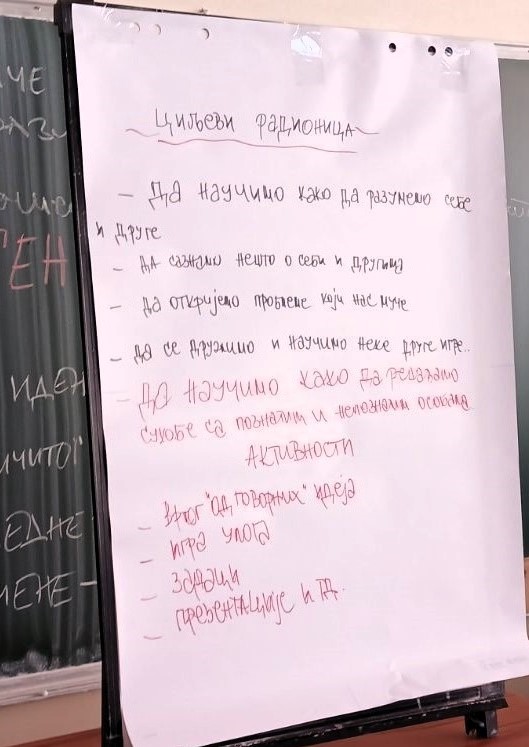 ЦИЉЕВИ РАДИОНИЦА
- ДА НАУЧИМО КАКО ДА РАЗУМЕМО СЕБЕ
И ДРУГЕ
- ДА САЗНАМО НЕШТО О СЕБИ И ДРУГИМА
- ДА ОТКРИЈЕМО ПРОБЛЕМЕ КОЈИ НАС МУЧЕ
- ДА СЕ ДРУЖИМО И НАУЧИМО НЕКЕ ДРУГЕ ИГРЕ..
- ДА НАУЧИМО КАКО ДА РЕШАВАМО
СУКОБЕ СА ПОЗНАТИМ И НЕПОЗНАТИМ ОСОБАМА
АКТИВНОСТИ
- "ОДГОВОРНИХ" ИДЕЈА
- ИГРА УЛОГА
- ЗАДАЦИ
- ПРЕЗЕНТАЦИЈЕ И ТД.
ЧЕ
ИДЕН
ЕДНЕ
МЕНЕ -